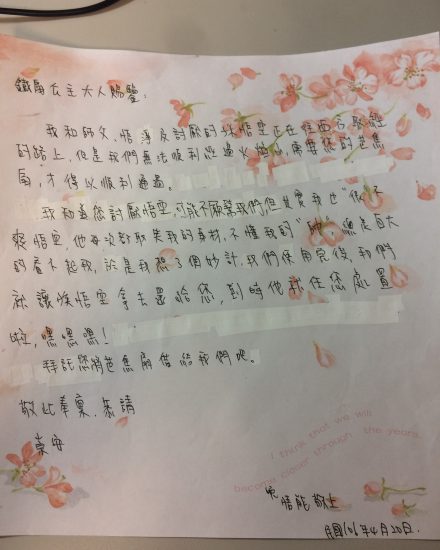 鐵扇公主大人賜鑒：
我和師父、悟淨及討厭的孫悟空正在往西方取經
的路上，但是我們無法順利經過火焰山，需要您的芭蕉
扇，才得以順利通過。
我知道您討厭悟空，可能不願幫我們，但其實我也"很"不
爽悟空，他每次都取笑我的身材，不懂我的"帥"，總是自大
的看不起我，於是我想了個妙計，我們使用完後，我們
就讓孫悟空拿去還給您，到時他就任您處置
啦，嘿嘿嘿！
拜託您將芭蕉扇借給我們吧。
敬此奉稟，恭請
崇安
I think that we will
become closer through the years.
悟能 敬上
民國106年4月20日.